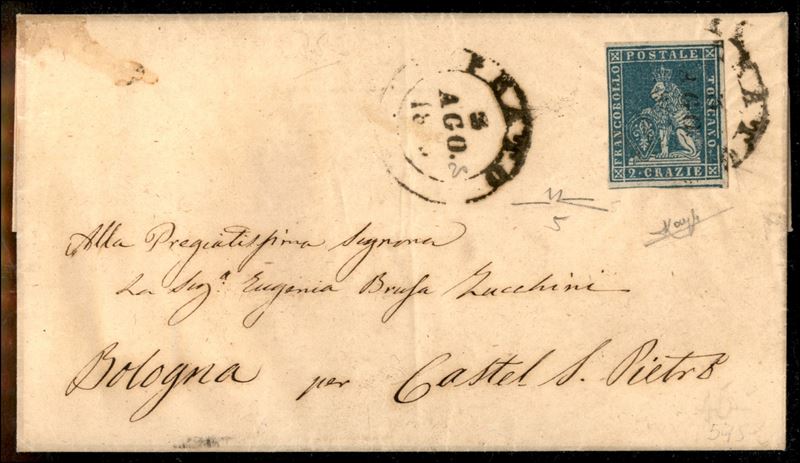 PRATO
3
AGO.
18
PRATO
AGO
FRANCOBOLLO POSTALE TOSCANO
2 · CRAZIE
11
5
Alla Pregiatissima Signora
La Sig.ª Eugenia Brusa Zucchini
Bologna per Castel S. Pietro